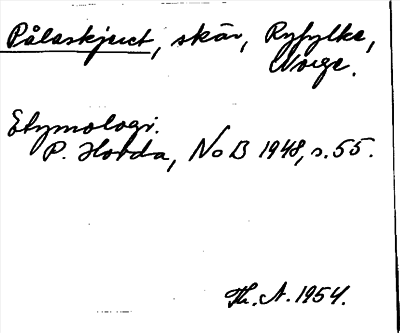 Pålaskjæret, skär, Ryfylke,
Norge.
Etymologi.
P. Hovda, NoB 1948, s. 55.
Th. A. 1954.